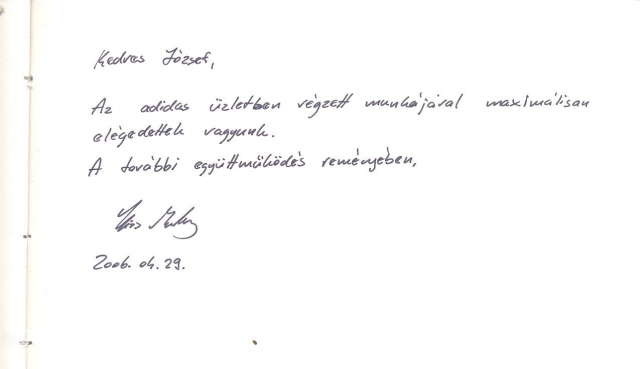 Kedves József,
Az adidas üzletben végzett munkájával maximálisan
elégedettek vagyunk.
A további együttműködés reményében,
2006. 04. 29.